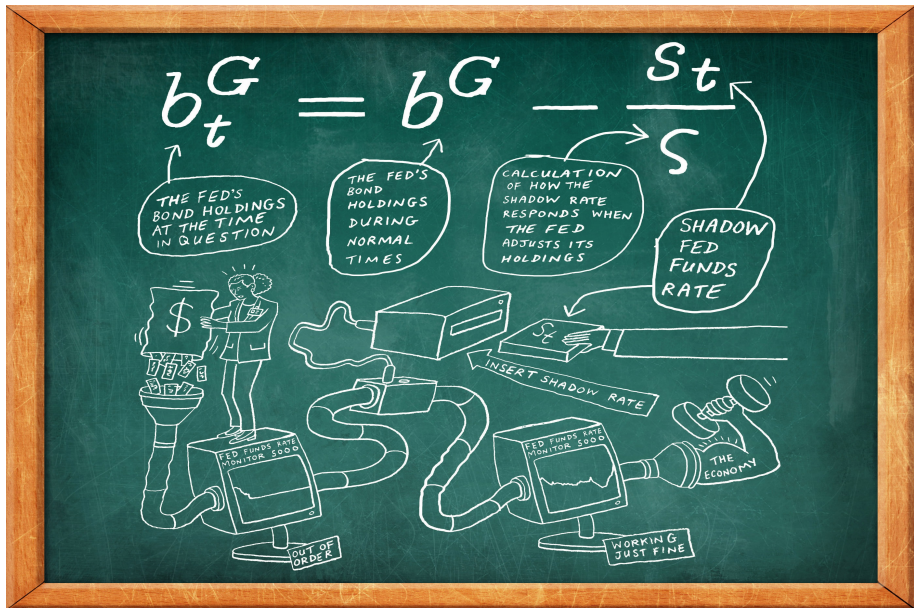 b_t^G = b^G − s_t / s
THE FED'S
BOND HOLDINGS
AT THE TIME
IN QUESTION
THE FED'S
BOND
HOLDINGS
DURING
NORMAL
TIMES
CALCULATION
OF HOW THE
SHADOW RATE
RESPONDS WHEN
THE FED
ADJUSTS ITS
HOLDINGS
SHADOW
FED
FUNDS
RATE
$
St
INSERT SHADOW RATE
FED FUNDS RATE
MONITOR 5000
OUT OF
ORDER
FED FUNDS RATE
MONITOR 5000
WORKING
JUST FINE
THE
ECONOMY